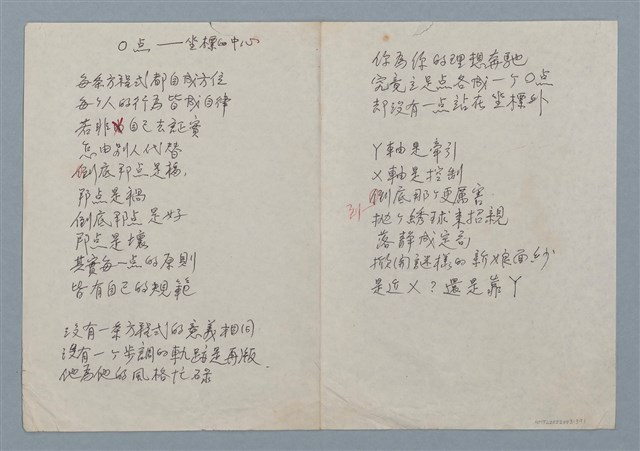 O点 —— 坐標的中心
每条方程式都自成方位
每个人的行為皆成自律
若非自己去証實
怎由別人代替
倒底那点是福,
那点是禍
倒底那点是好
那点是壞
其實每一点的原則
皆有自己的規範
沒有一条方程式的意義相同
沒有一个步調的軌跡是再版
他為他的風格忙碌
你為你的理想奔馳
究竟主是点各成一个O点
却沒有一点站在坐標外
Y軸是牽引
X軸是控制
倒底那个更厲害
拋个綉球來招親
落静成定局
掀開謎樣的新娘面紗
是近X？還是靠Y